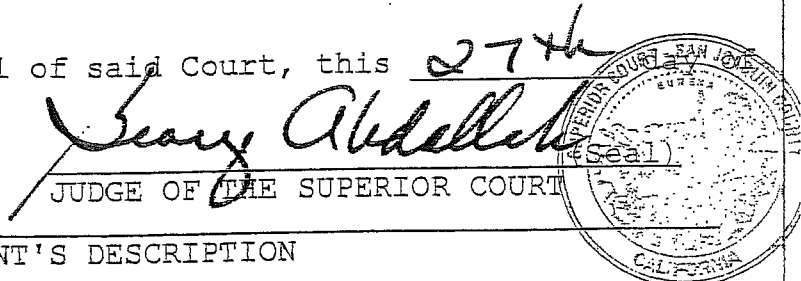 l of said Court, this 27th day of
George Abdallah (Seal)
JUDGE OF THE SUPERIOR COURT
NT'S DESCRIPTION
SUPERIOR COURT - SAN JOAQUIN COUNTY
EUREKA
CALIFORNIA